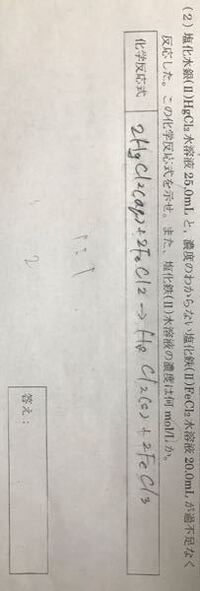 (2) 塩化水銀(II)HgCl₂水溶液 25.0mL と、濃度のわからない塩化鉄(II)FeCl₂水溶液 20.0mL が過不足なく
反応した。この化学反応式を示せ。また、塩化鉄(II)水溶液の濃度は何 mol/L か。
化学反応式
2HgCl2(aq)+2FeCl2→Hg2Cl2(s)+2FeCl3
1:1
2
答え: